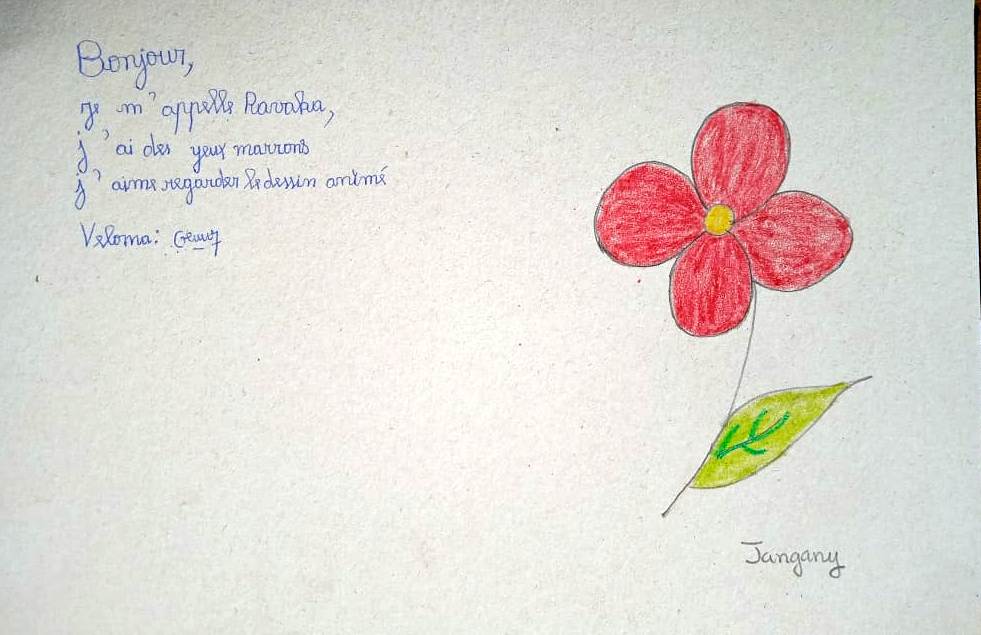 Bonjour,
je m'appelle Ravaka,
j'ai des yeux marrons
j'aime regarder le dessin animé
Veloma:
Jangany